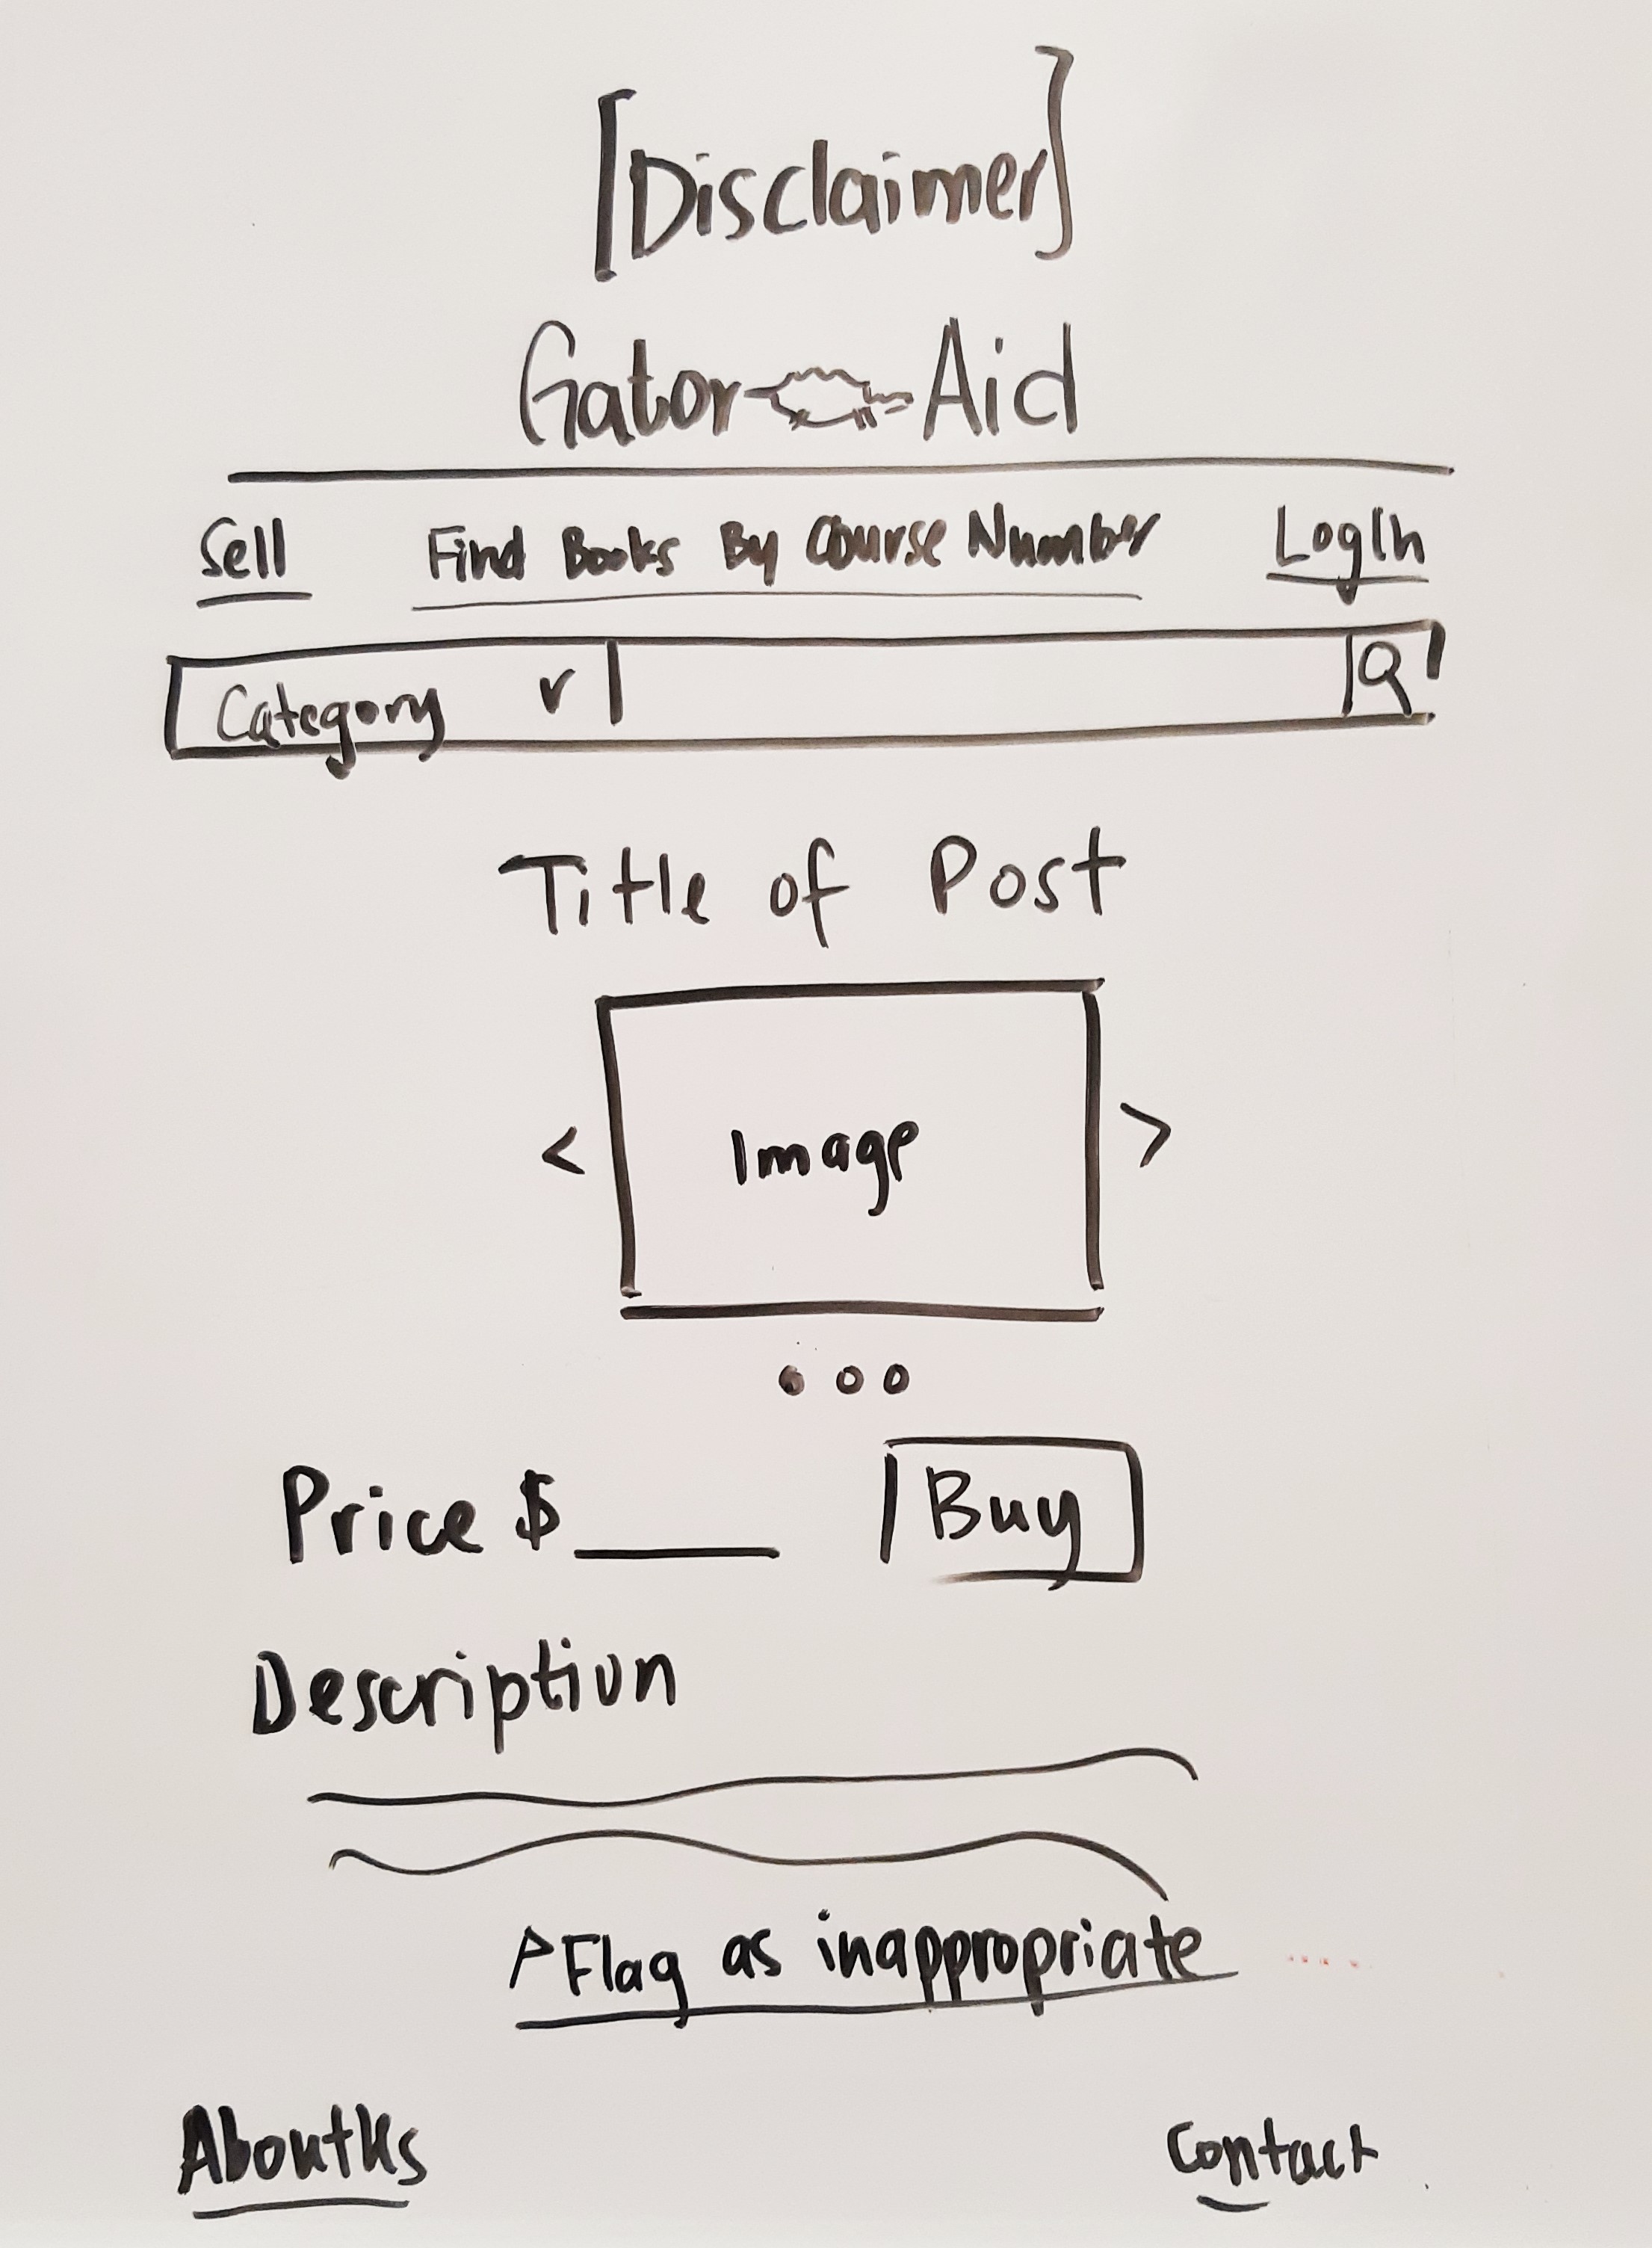 [Disclaimer]
Gator Aid
Sell Find Books By Course Number LogIn
Category
Title of Post
< Image >
Price $____ Buy
Description
Flag as inappropriate
About Us Contact